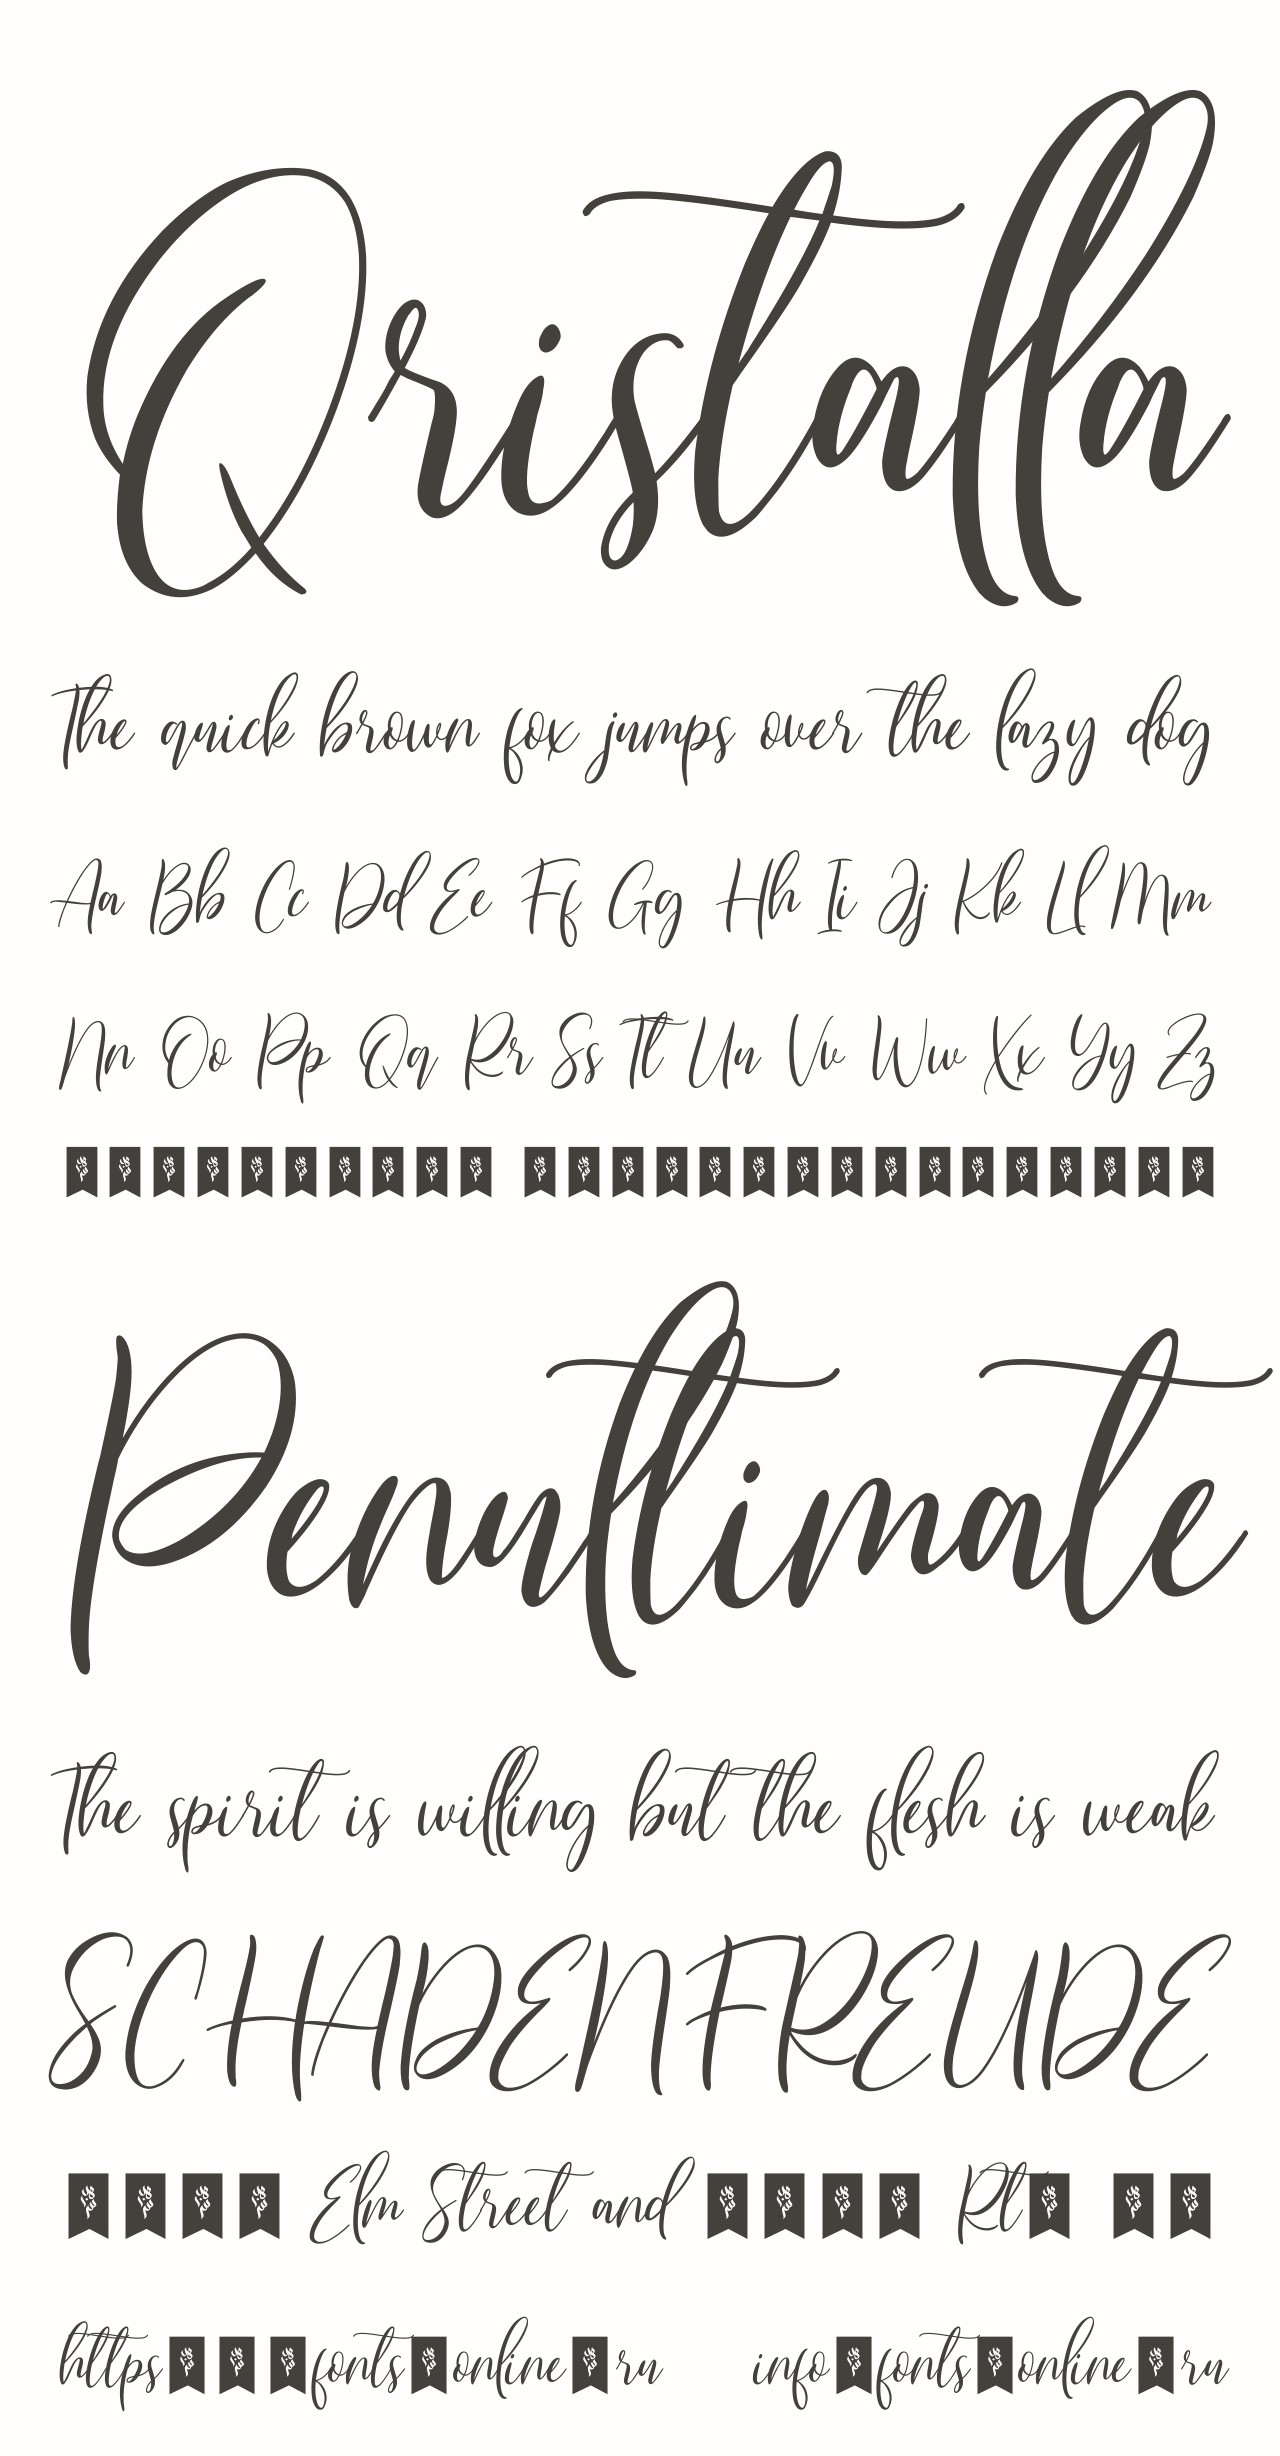 Qristalla
The quick brown fox jumps over the lazy dog
Aa Bb Cc Dd Ee Ff Gg Hh Ii Jj Kk Ll Mm
Nn Oo Pp Qq Rr Ss Tt Uu Vv Ww Xx Yy Zz
Penultimate
The spirit is willing but the flesh is weak
SCHADENFREUDE
Elm Street and Rt
https fonts online ru info fonts online ru